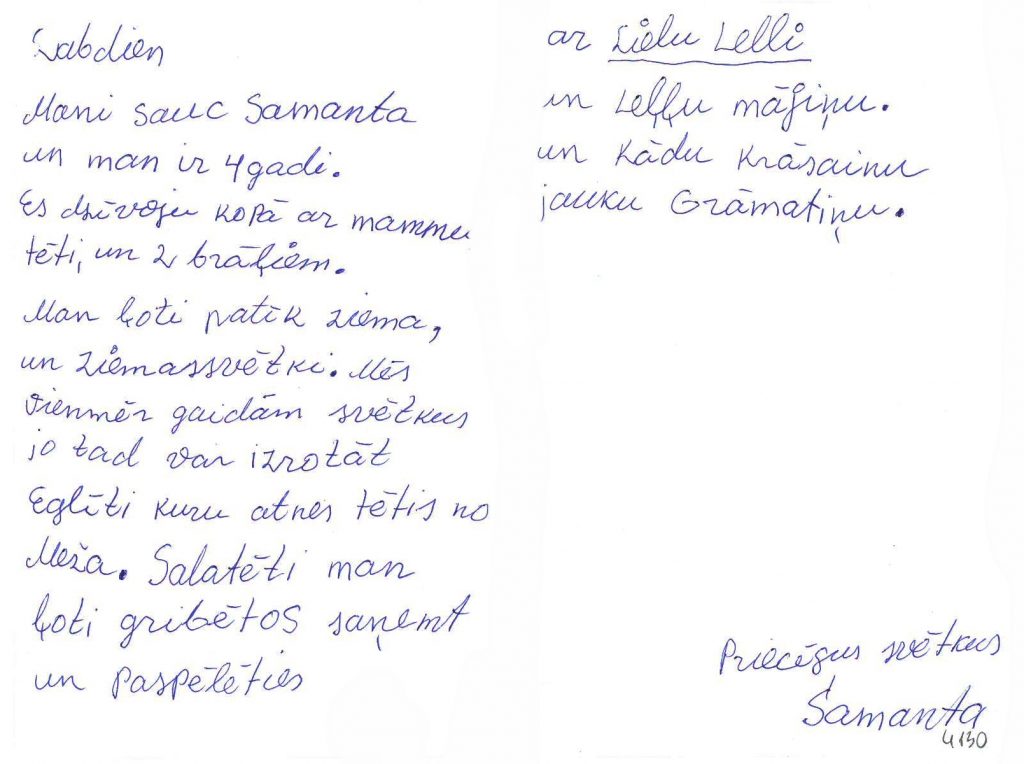 Labdien
Mani sauc Samanta
un man ir 4 gadi.
Es dzīvoju kopā ar mammu
tēti, un 2 brāļiem.
Man ļoti patīk ziema,
un Ziemassvētki. Mēs
vienmēr gaidām svētkus
jo tad var izrotāt
Eglīti kuru atnes tētis no
Meža. Salatēti man
ļoti gribētos saņemt
un paspēlēties
ar Lielu Lelli
un Leļļu māģiņu.
un kādu krāsainu
jauku Grāmatiņu.
Priecīgus svētkus
Samanta
4130